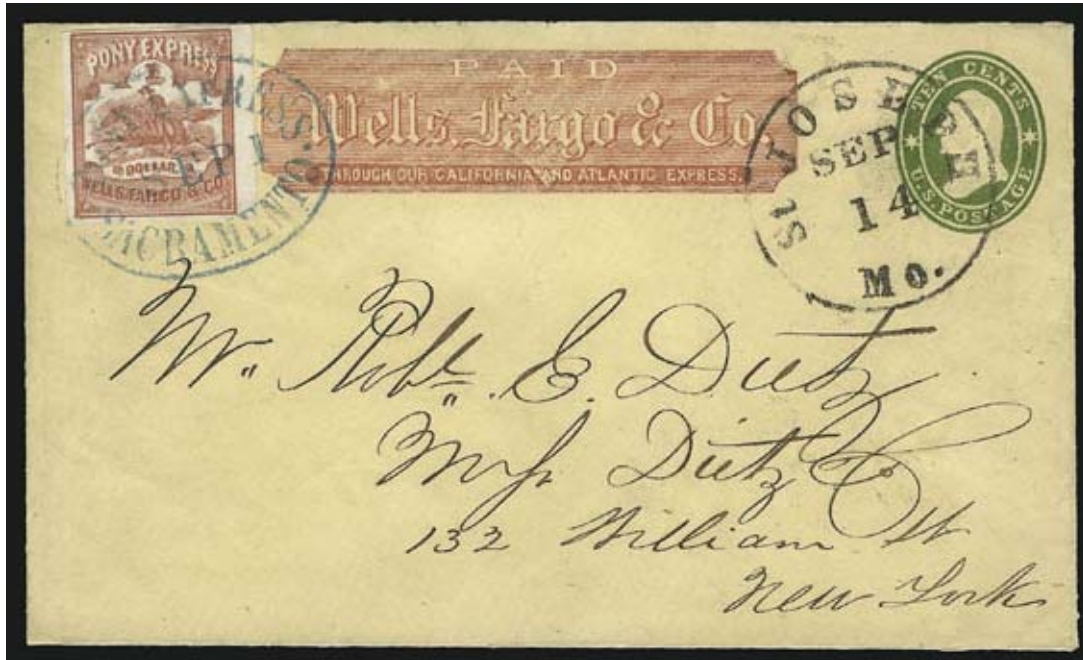 PONY EXPRESS
DOLLAR.
WELLS, FARGO & CO.
EXPRESS.
SEP 1
SACRAMENTO.
PAID
Wells, Fargo & Co.
THROUGH OUR CALIFORNIA AND ATLANTIC EXPRESS.
St JOSEPH
SEP
14
Mo.
TEN CENTS
U.S. POSTAGE
Mr. Robt. E. Dietz
Dietz & Co
132 William St
New York